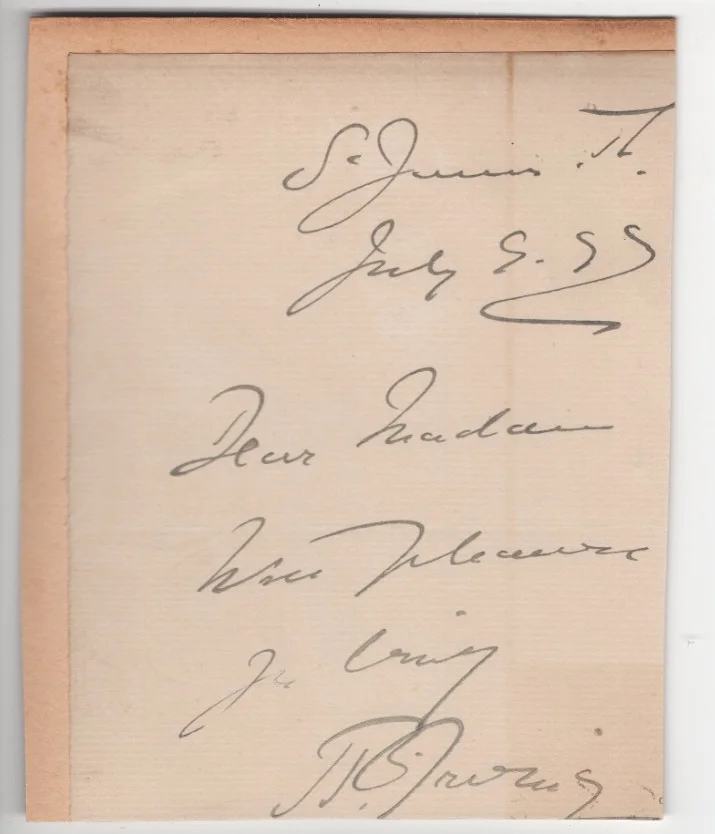 St James' St.
July 9. 99
Dear Madam
With pleasure
Yrs truly
H B Irving